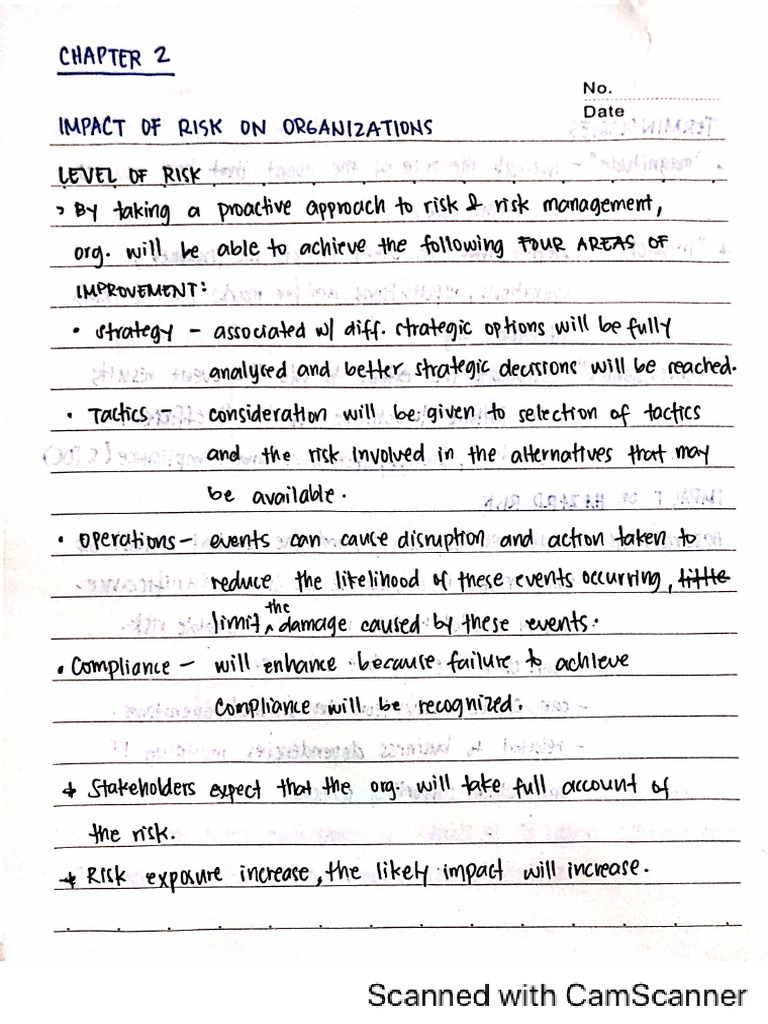 CHAPTER 2
No.
Date
IMPACT OF RISK ON ORGANIZATIONS
LEVEL OF RISK
> By taking a proactive approach to risk & risk management,
org. will be able to achieve the following FOUR AREAS OF
IMPROVEMENT:
• strategy – associated w/ diff. strategic options will be fully
analysed and better strategic decisions will be reached.
• Tactics – consideration will be given to selection of tactics
and the risk involved in the alternatives that may
be available.
• Operations – events can cause disruption and action taken to
reduce the likelihood of these events occurring,
limit the damage caused by these events.
• Compliance – will enhance because failure to achieve
compliance will be recognized.
→ Stakeholders expect that the org. will take full account of
the risk.
→ Risk exposure increase, the likely impact will increase.
Scanned with CamScanner